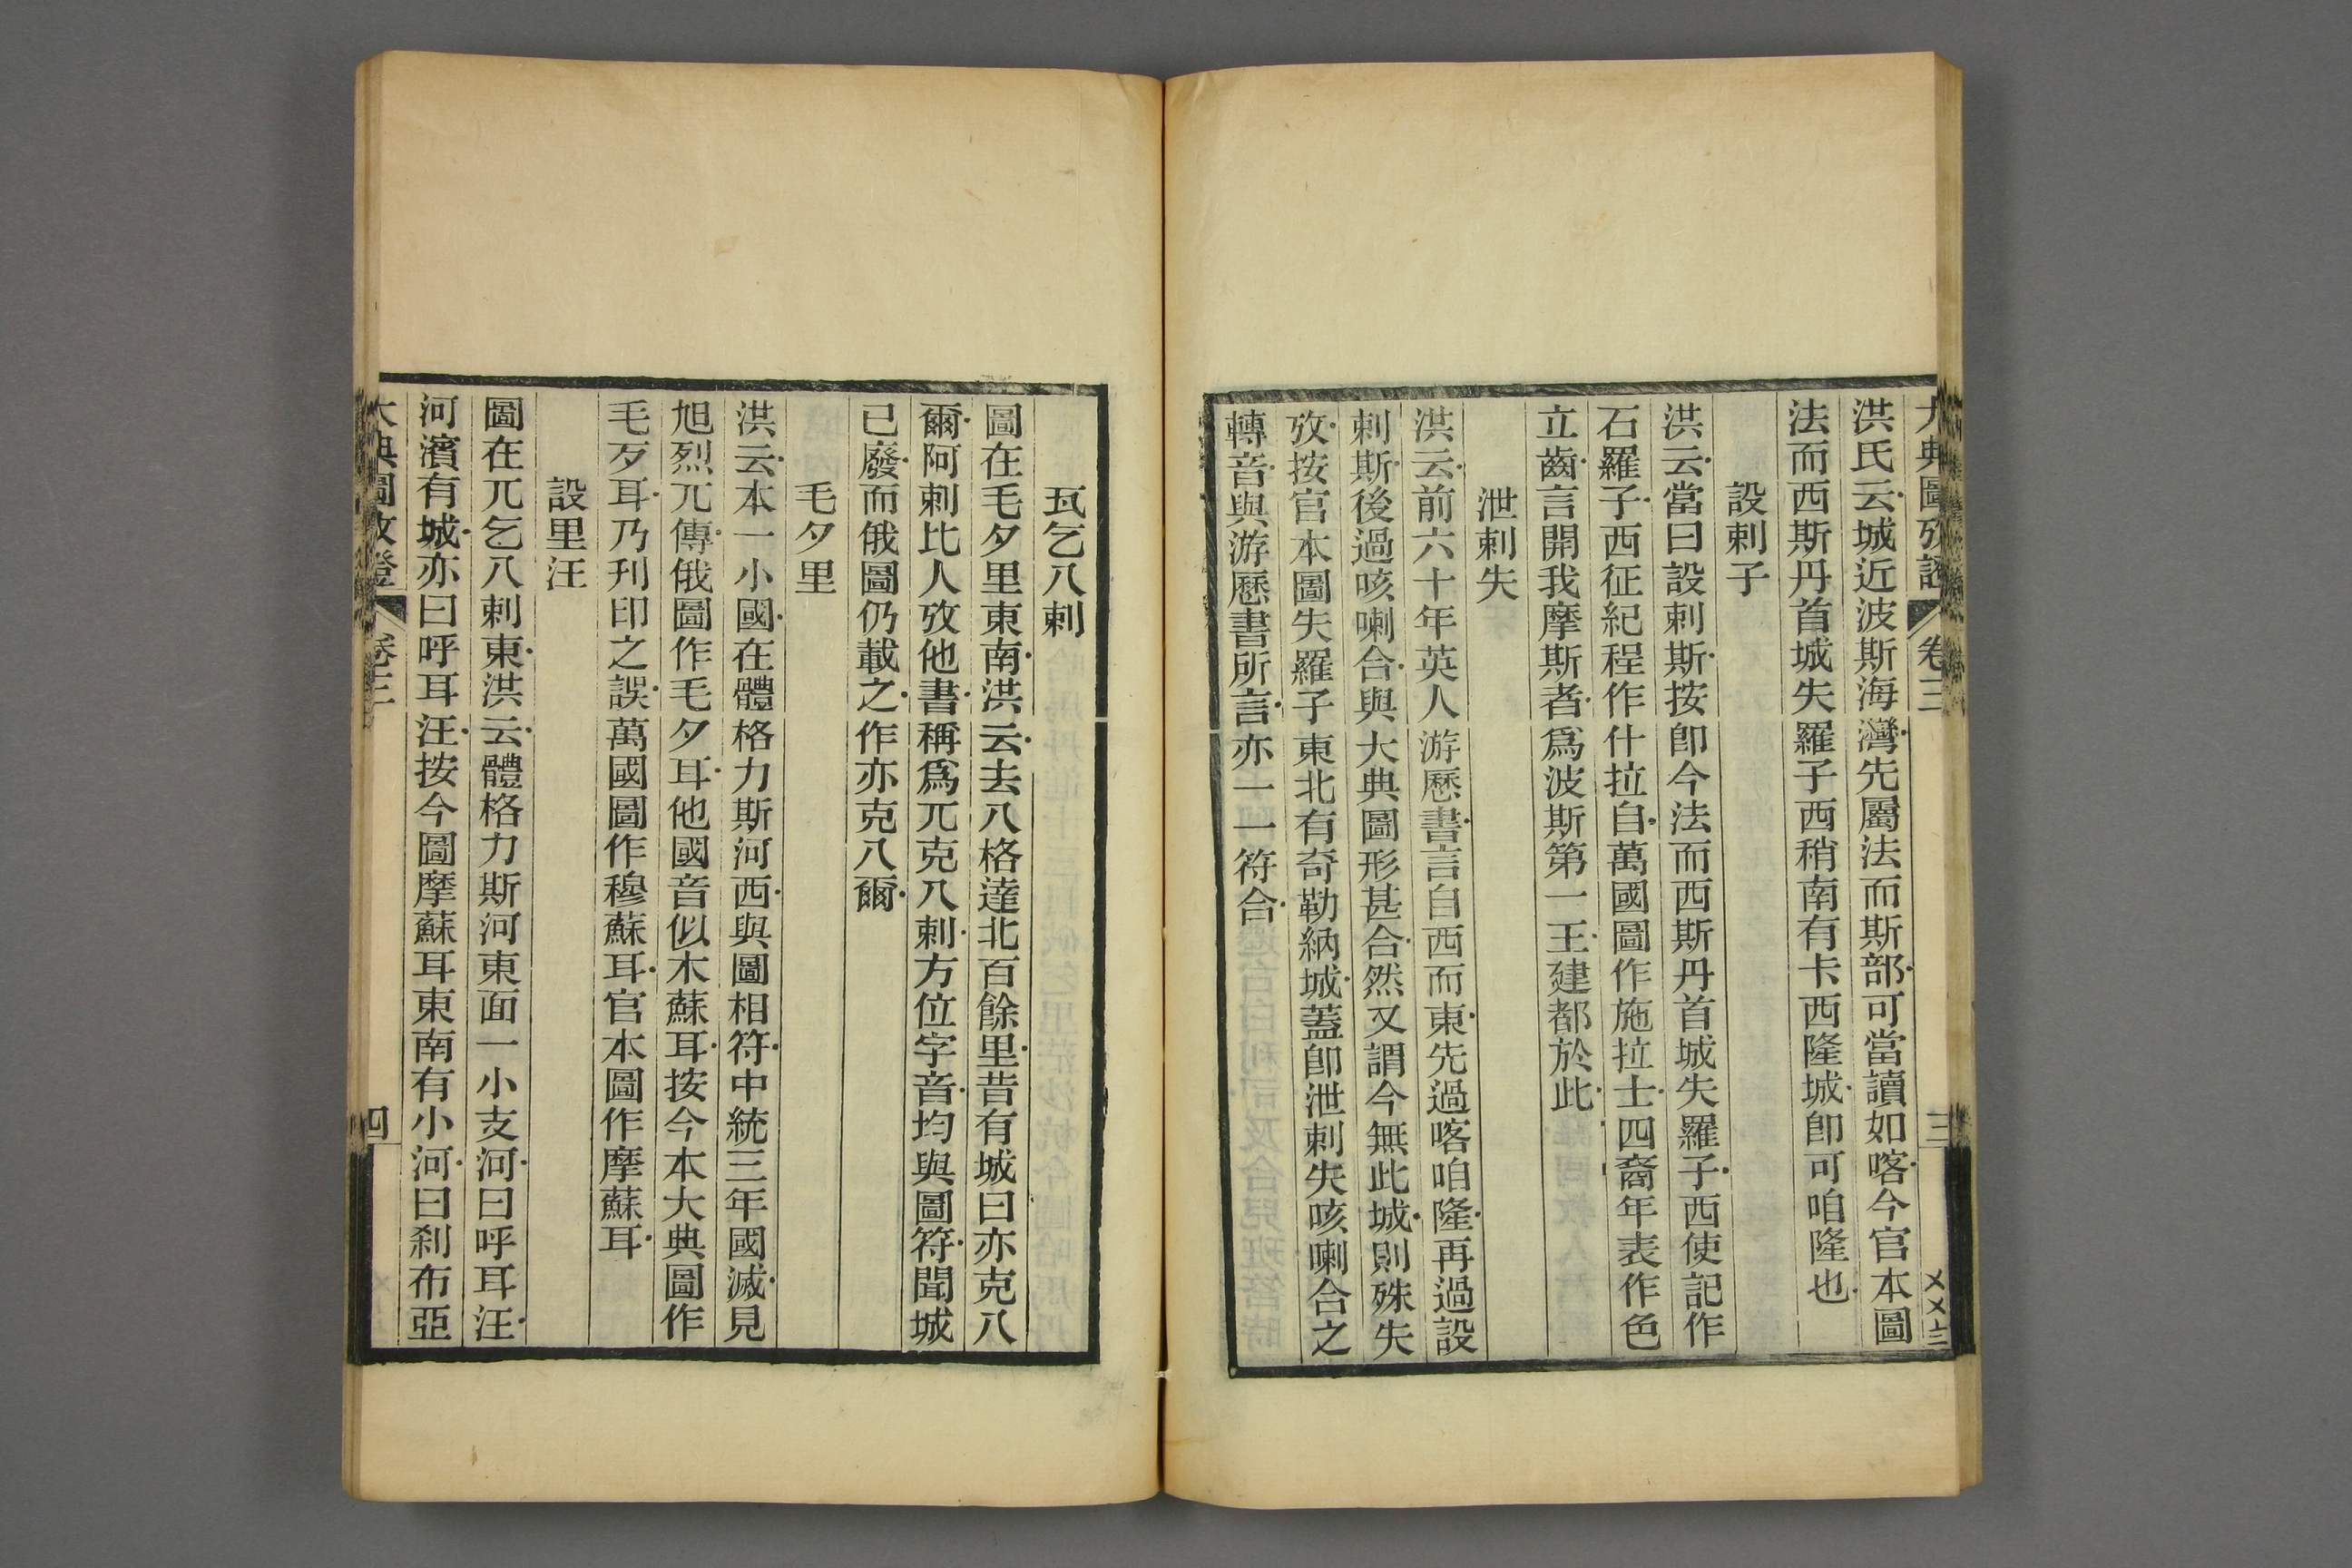 大典圖攷證 卷三 三
洪氏云城近波斯海灣先屬法而斯部可當讀如喀今官本圖
法而西斯丹首城失羅子西稍南有卡西隆城卽可咱隆也
設剌子
洪云當曰設剌斯按卽今法而西斯丹首城失羅子西使記作
石羅子西征紀程作什拉自萬國圖作施拉士四裔年表作色
立齒言開我摩斯者爲波斯第一王建都於此
泄剌失
洪云前六十年英人游歷書言自西而東先過喀咱隆再過設
剌斯後過咳喇合與大典圖形甚合然又謂今無此城則殊失
攷按官本圖失羅子東北有奇勒納城蓋卽泄剌失咳喇合之
轉音與游歷書所言亦一一符合
瓦乞八剌
圖在毛夕里東南洪云去八格達北百餘里昔有城曰亦克八
爾阿剌比人攷他書稱爲兀克八剌方位字音均與圖符聞城
已廢而俄圖仍載之作亦克八爾
毛夕里
洪云本一小國在體格力斯河西與圖相符中統三年國滅見
旭烈兀傳俄圖作毛夕耳他國音似木蘇耳按今本大典圖作
毛歹耳乃刊印之誤萬國圖作穆蘇耳官本圖作摩蘇耳
設里汪
圖在兀乞八剌東洪云體格力斯河東面一小支河曰呼耳汪
河濱有城亦曰呼耳汪按今圖摩蘇耳東南有小河曰刹布亞
大典圖攷證 卷三 四